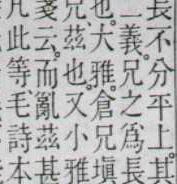 長不分平上其
一義兄之爲長
也大雅倉兄塡
兄茲也又小雅
戔云而亂茲甚
凡此等毛詩本